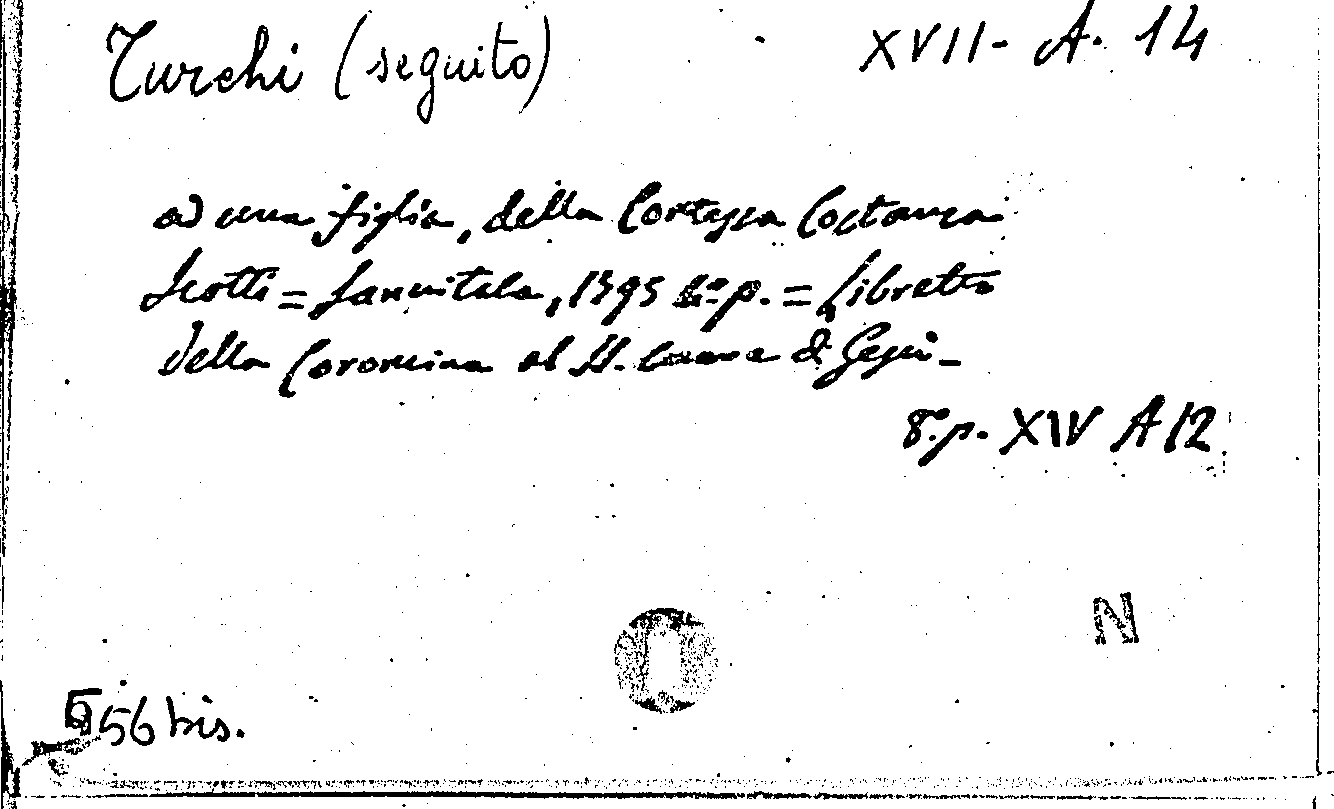 Turchi (seguito) XVII - A. 14
ad una figlia, della Contessa Costanza
Scotti = Sanvitale, 1795 in p. = Libretto
della Coroncina al S. Cuore di Gesù -
8.° p. XIV A 12
N
556 bis.